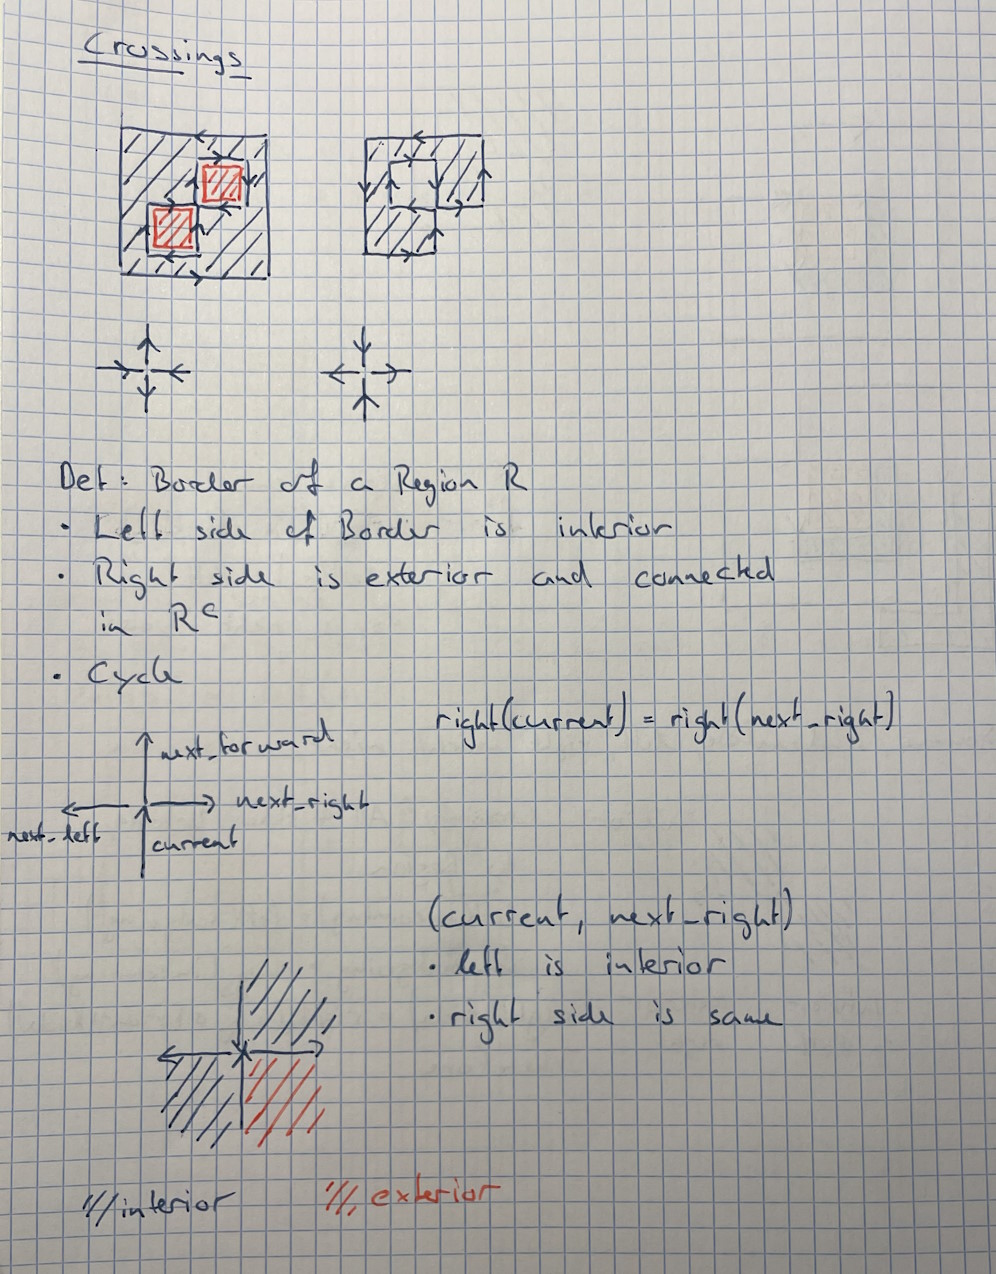 Crossings
Def: Border of a Region R
· Left side of Border is interior
· Right side is exterior and connected
in R^c
· Cycle
right(current) = right(next_right)
next_forward
next_right
next_left
current
(current, next_right)
· left is interior
· right side is same
interior
exterior